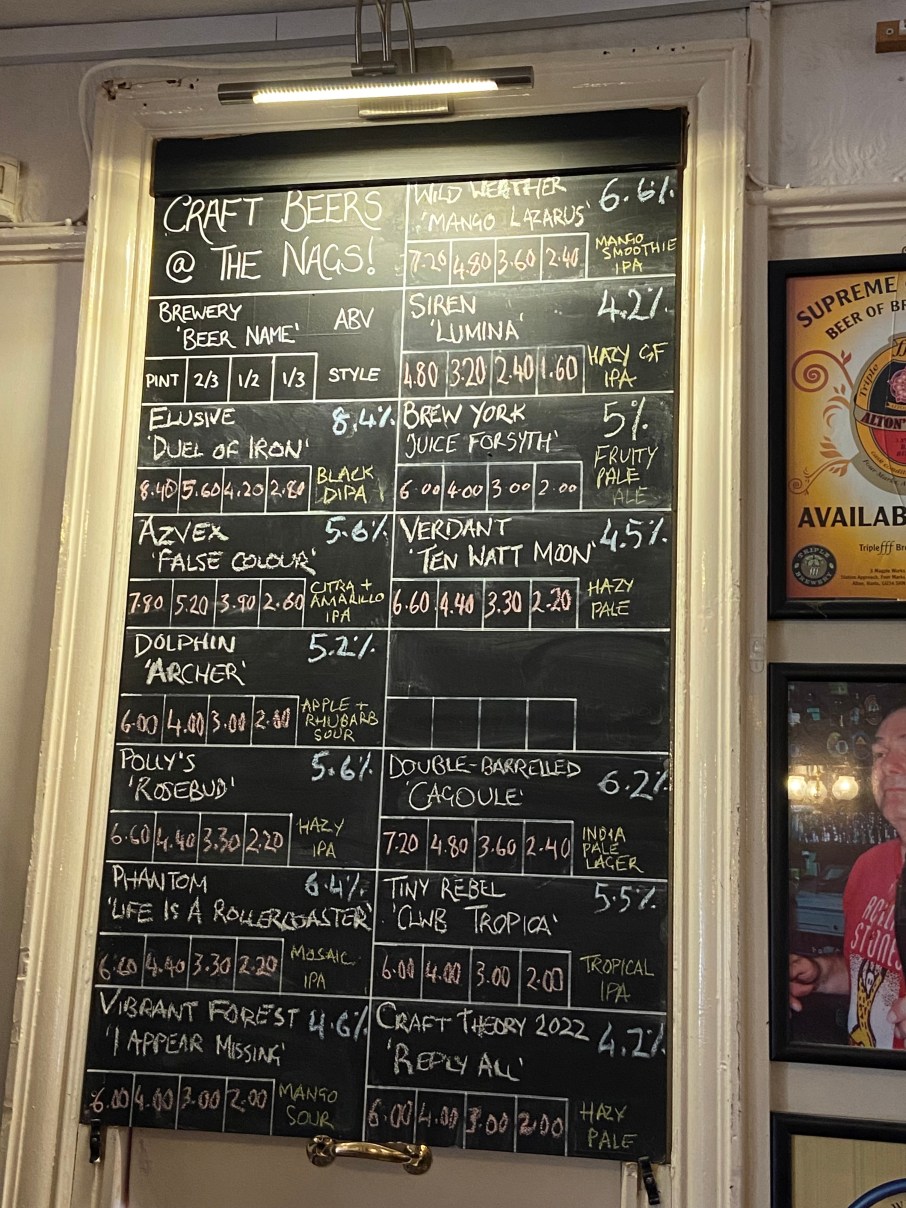 CRAFT BEERS
@ THE NAGS!
BREWERY
'BEER NAME'
ABV
PINT 2/3 1/2 1/3
STYLE
ELUSIVE
'DUEL OF IRON'
8.4%
8.40 5.60 4.20 2.80
BLACK
DIPA
AZVEX
'FALSE COLOUR'
5.6%
7.80 5.20 3.90 2.60
CITRA +
AMARILLO
IPA
DOLPHIN
'ARCHER'
5.2%
6.00 4.00 3.00 2.00
APPLE +
RHUBARB
SOUR
POLLY'S
'ROSEBUD'
5.6%
6.60 4.40 3.30 2.20
HAZY
IPA
PHANTOM
'LIFE IS A ROLLERCOASTER'
6.4%
6.60 4.40 3.30 2.20
MOSAIC
IPA
VIBRANT FOREST
'I APPEAR MISSING'
4.6%
6.00 4.00 3.00 2.00
MANGO
SOUR
WILD WEATHER
'MANGO LAZARUS'
6.6%
7.20 4.80 3.60 2.40
MANGO
SMOOTHIE
IPA
SIREN
'LUMINA'
4.2%
4.80 3.20 2.40 1.60
HAZY GF
IPA
BREW YORK
'JUICE FORSYTH'
5%
6.00 4.00 3.00 2.00
FRUITY
PALE
ALE
VERDANT
'TEN WATT MOON'
4.5%
6.60 4.40 3.30 2.20
HAZY
PALE
DOUBLE-BARRELLED
'CAGOULE'
6.2%
7.20 4.80 3.60 2.40
INDIA
PALE
LAGER
TINY REBEL
'CLWB TROPICA'
5.5%
6.00 4.00 3.00 2.00
TROPICAL
IPA
CRAFT THEORY 2022
'REPLY ALL'
4.2%
6.00 4.00 3.00 2.00
HAZY
PALE
SUPREME
BEER OF BR
Triple
ALTON'
AVAILAB
Triple fff Bre
TRIPLE
BREWERY
ROLLI
STONES